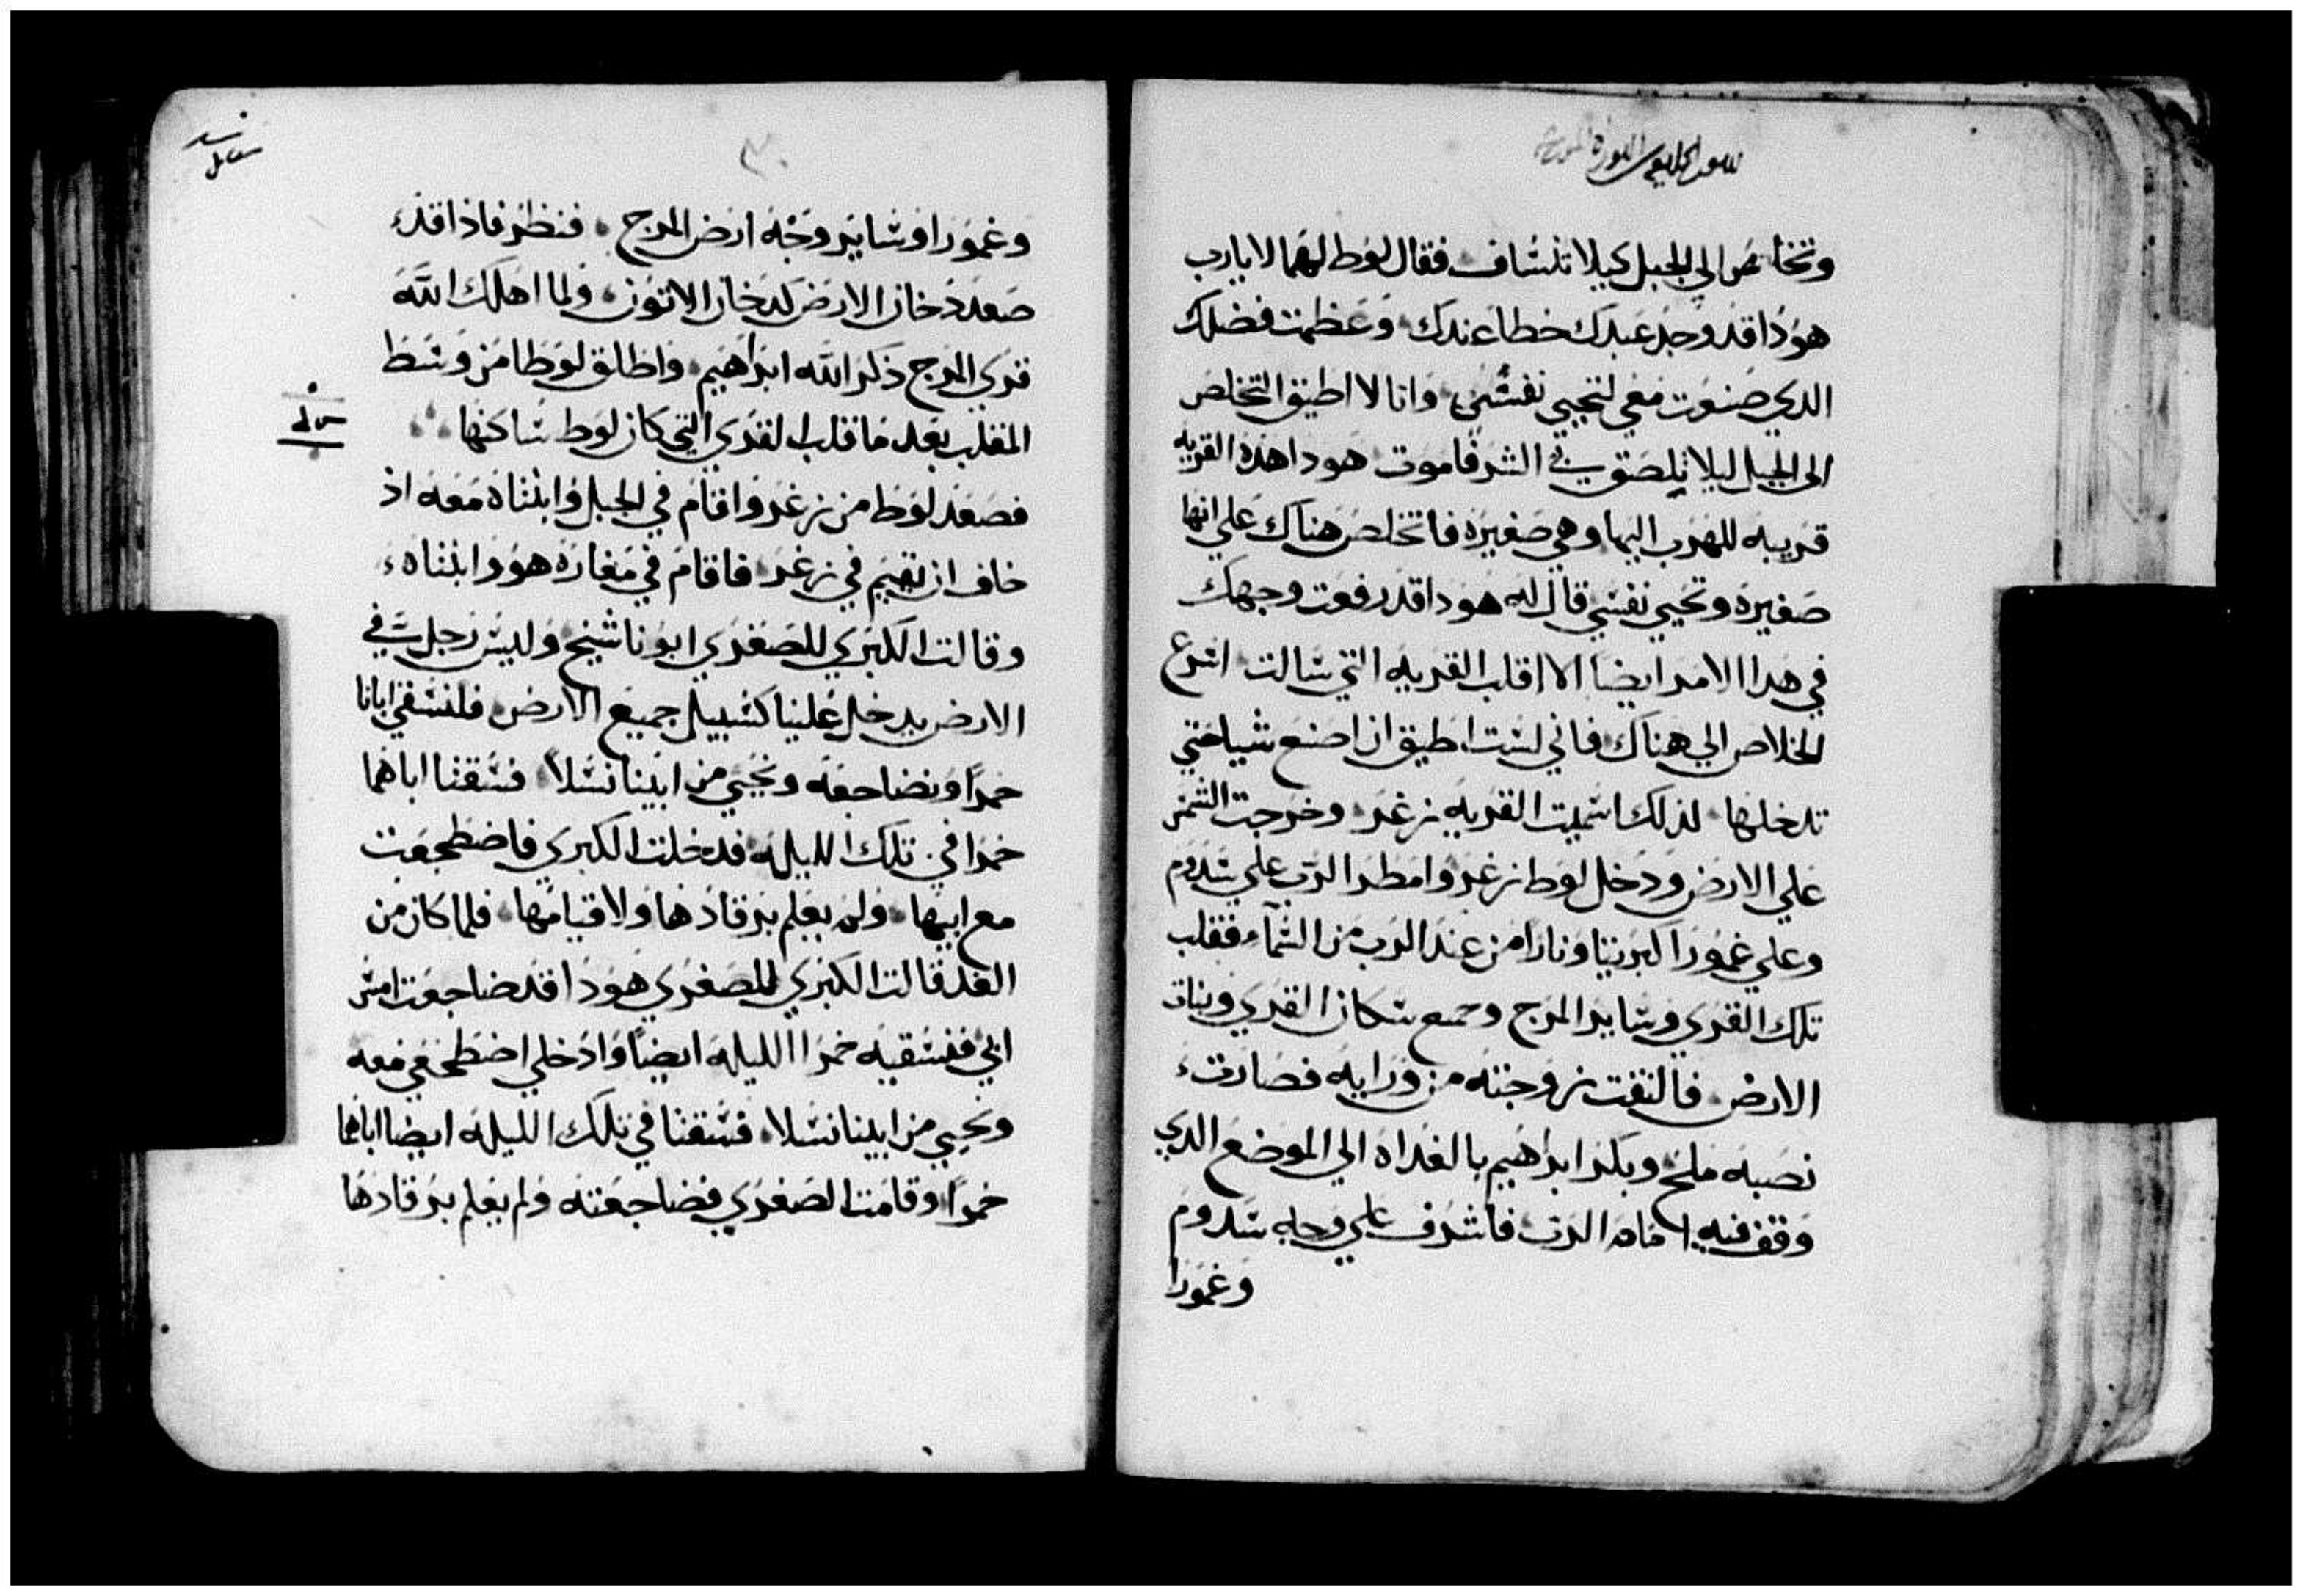 وتخلص الي الجبل كيلا تنساف فقال لوط لهما لا يارب
هوذا قد وجد عبدك خطا عندك وعظمت فضلك
الدي صنعت معي لتحيي نفسي وانا لا اطيق التخلص
الى الجبل ليلا يلصق بي الشر فاموت هودا هده القريه
قريبه للهرب اليها وهي صغيره فاتخلص هناك علي انها
صغيره وتحيي نفسي قال له هودا قد رفعت وجهك
في هدا الامر ايضا الا اقلب القريه التي سالت اسرع
الخلاص الي هناك فاني لست اطيق ان اصنع شيا حتي
تدخلها لذلك اسميت القريه زغر وخرجت الشمس
علي الارض ودخل لوط زغر وامطر الرب علي سدوم
وعلي غمورا كبريتا ونارا من عند الرب من السماء فقلب
تلك القري وساير المرج وجميع سكان القري ونبات
الارض فالتفت زوجته من ورايه فصارت
نصبه ملح وبكر ابراهيم بالغداه الي الموضع الدي
وقف فيه امام الرب فاشرف علي وجه سدوم
وغمورا
٣٠
وغمورا وساير وجه ارض المرج فنظر فاذا قد
صعد دخان الارض كدخان الاتون ولما اهلك الله
قري المرج ذكر الله ابراهيم واطلق لوطا من وسط
المقلب بعد ما قلب القري التي كان لوط ساكنها
فصعد لوط من زغر واقام في الجبل وابنتاه معه اذ
خاف ان يقيم في زغر فاقام في مغاره هو وابنتاه
وقالت الكبري للصغري ابونا شيخ وليس رجل في
الارض يدخل علينا كسبيل جميع الارض فلنسقي ابانا
خمرا ونضاجعه ونحيي من ابينا نسلا فسقتا اباهما
خمرا في تلك الليله فدخلت الكبري فاضطجعت
مع ابيها ولم يعلم برقادها ولا قيامها فلما كان من
الغد قالت الكبري للصغري هودا قد ضاجعت امس
ابي فنسقيه خمرا الليله ايضا وادخلي اضطجعي معه
ونحيي من ابينا نسلا فسقتا في تلك الليله ايضا اباهما
خمرا وقامت الصغري فضاجعته ولم يعلم برقادها